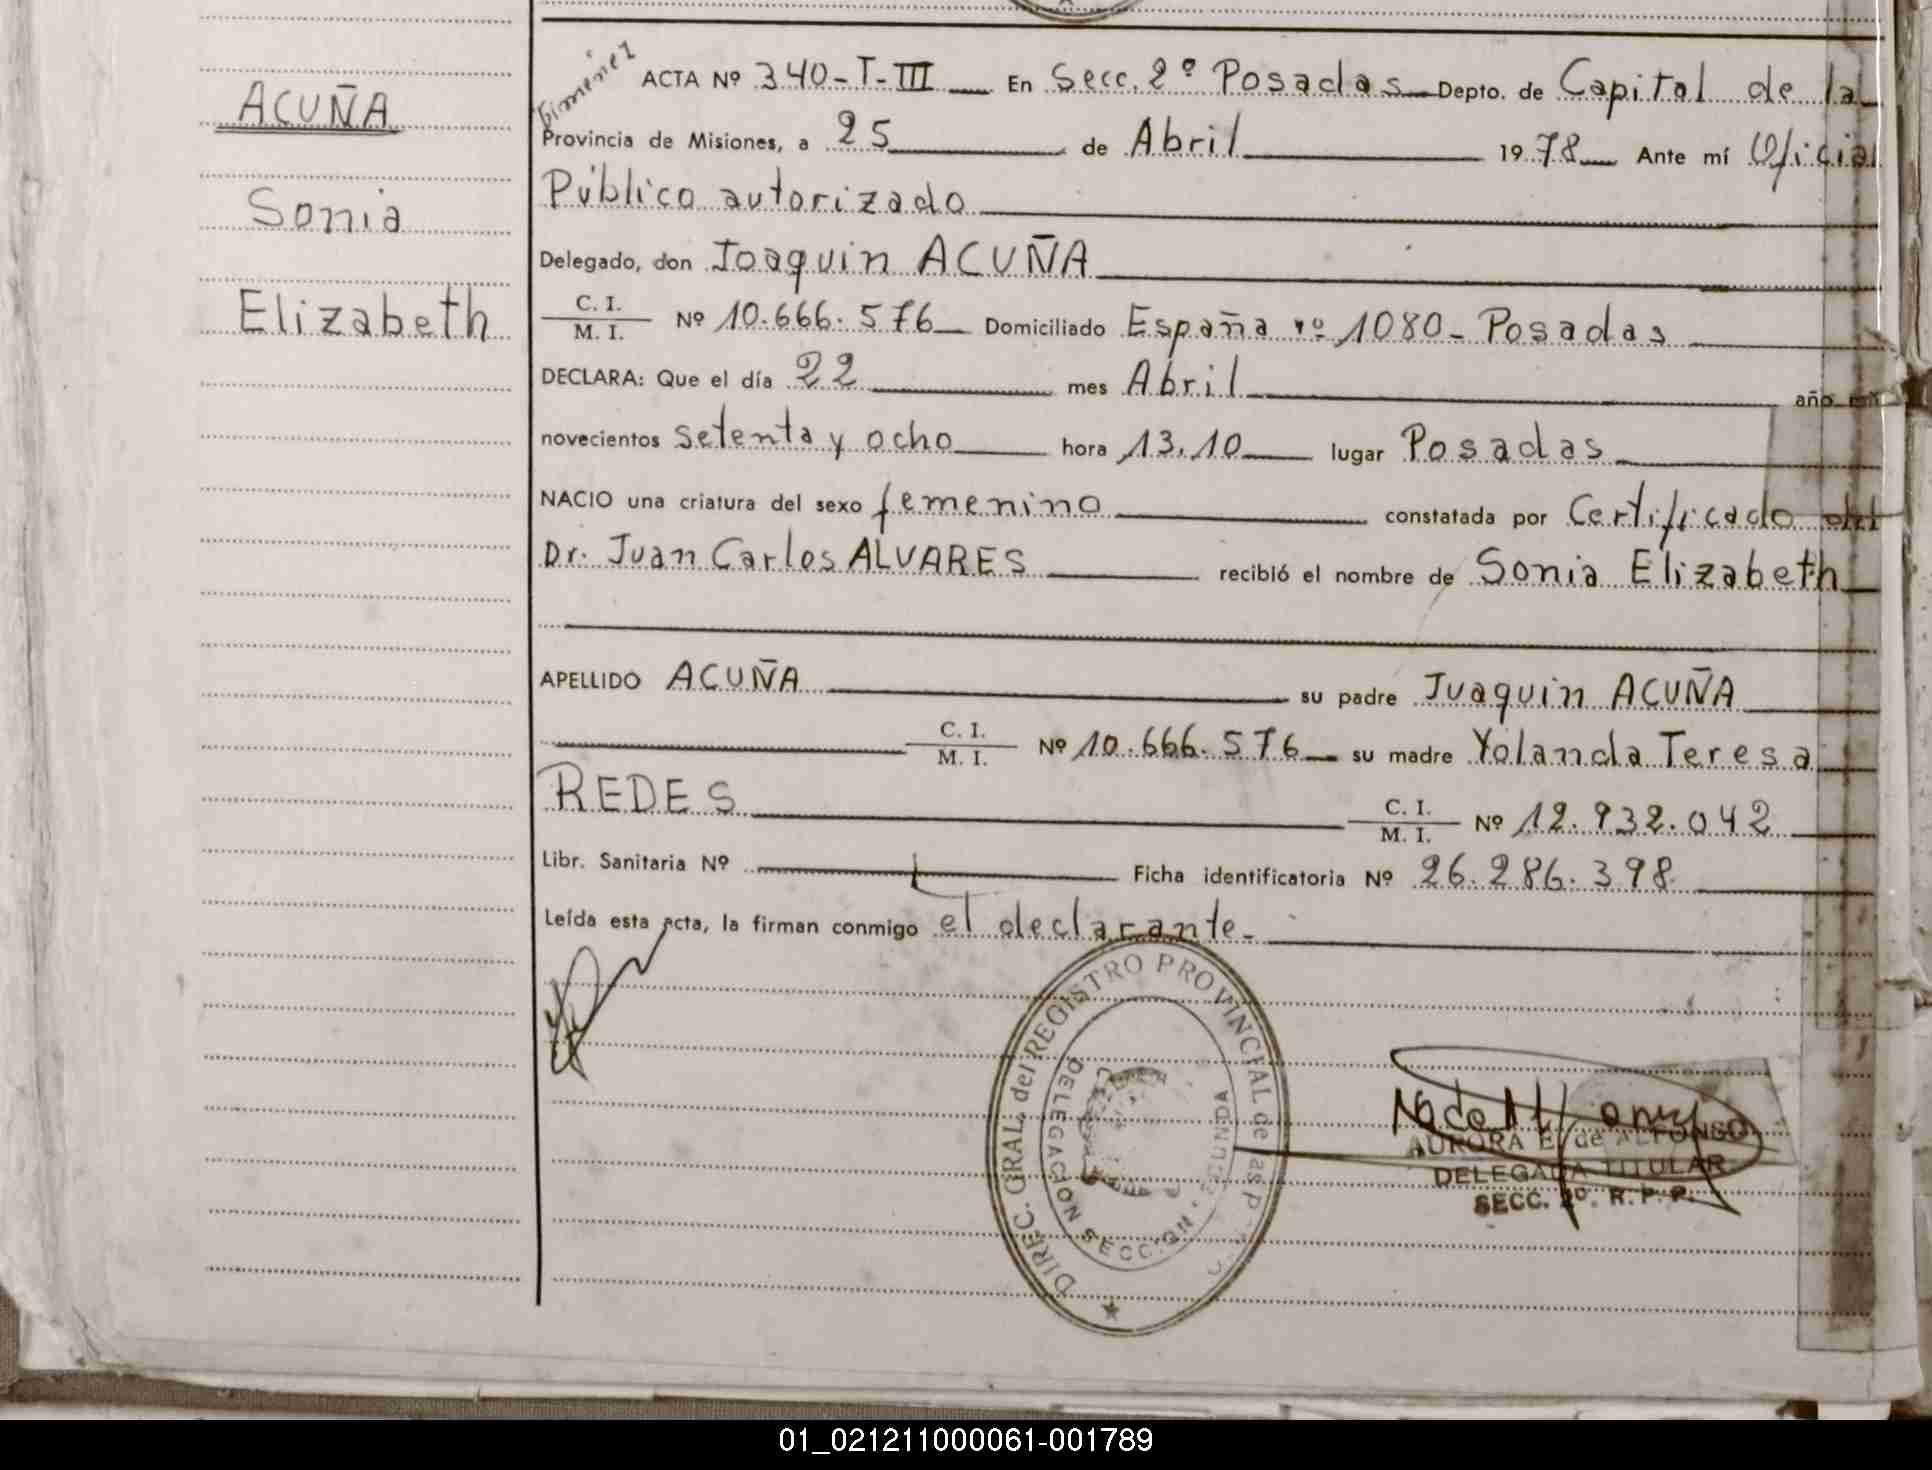 ACUÑA
Sonia
Elizabeth
Gimenez
ACTA Nº 340-T-III En Secc. 2º Posadas Depto. de Capital de la
Provincia de Misiones, a 25 de Abril 1978 Ante mí Oficial
Público autorizado
Delegado, don Joaquin ACUÑA
C. I.
M. I. Nº 10.666.576 Domiciliado España nº 1080- Posadas
DECLARA: Que el día 22 mes Abril año mil
novecientos setenta y ocho hora 13,10 lugar Posadas
NACIO una criatura del sexo femenino constatada por Certificado del
Dr. Juan Carlos ALVARES recibió el nombre de Sonia Elizabeth
APELLIDO ACUÑA su padre Juaquin ACUÑA
C. I.
M. I. Nº 10.666.576 su madre Yolanda Teresa
REDES C. I.
M. I. Nº 12.932.042
Libr. Sanitaria Nº Ficha identificatoria Nº 26.286.398
Leída esta acta, la firman conmigo el declarante.
DIREC. GRAL. del REGISTRO PROVINCIAL de las P
DELEGACION SECCION SEGUNDA
AURORA E. de ALFONSO
DELEGADA TITULAR
SECC. 2º. R. P. P.
01_021211000061-001789